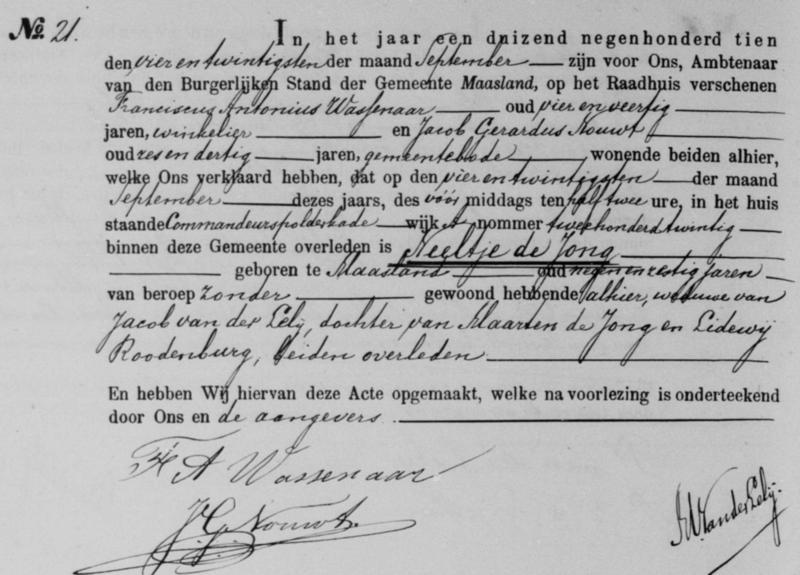 No. 21.
In het jaar een duizend negenhonderd tien
den vier en twintigsten der maand September zijn voor Ons, Ambtenaar
van den Burgerlijken Stand der Gemeente Maasland, op het Raadhuis verschenen
Franciscus Antonius Wassenaar oud vier en veertig
jaren, winkelier en Jacob Gerardus Nouwt
oud zes en dertig jaren, gemeentebode wonende beiden alhier,
welke Ons verklaard hebben, dat op den vier en twintigsten der maand
September dezes jaars, des vóór middags ten half twee ure, in het huis
staande Commandeurspolderkade wijk A nommer tweehonderd twintig
binnen deze Gemeente overleden is Neeltje de Jong
geboren te Maasland oud negen en zestig jaren
van beroep zonder gewoond hebbende alhier, weduwe van
Jacob van der Lelij, dochter van Maarten de Jong en Lidewij
Roodenburg, beiden overleden
En hebben Wij hiervan deze Acte opgemaakt, welke na voorlezing is onderteekend
door Ons en de aangevers.
F. A Wassenaar
J. G. Nouwt.
van der Lelij.